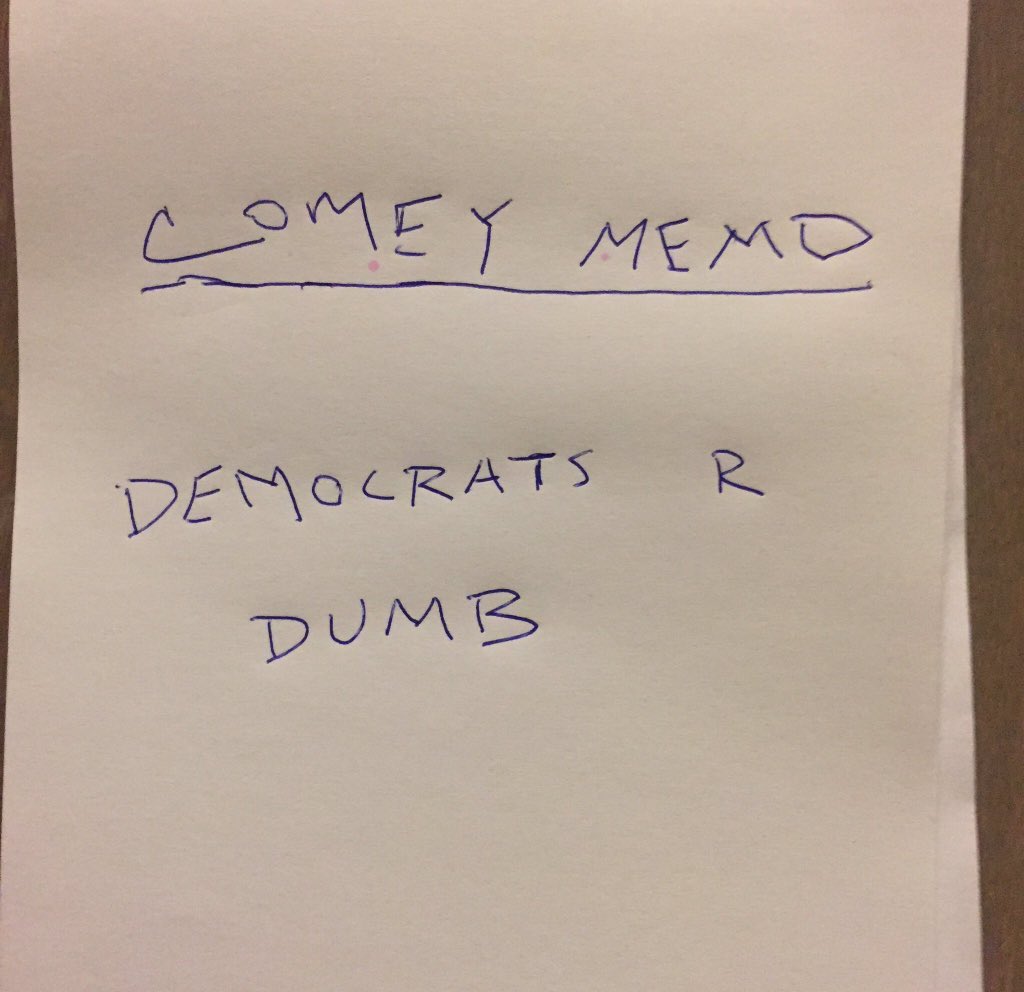 COMEY MEMO
DEMOCRATS R
DUMB